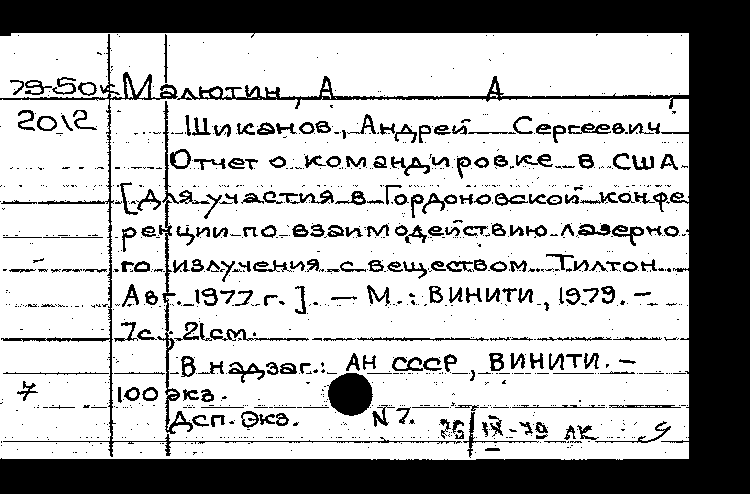 79-50к Малютин, А А
2012 Шиканов, Андрей Сергеевич
Отчет о командировке в США
[Для участия в Гордоновской конфе
ренции по взаимодействию лазерно
го излучения с веществом. Тилтон.
Авг. 1977 г.]. — М.: ВИНИТИ, 1979. —
7с.; 21см.
В надзаг.: АН СССР, ВИНИТИ. —
7 100 экз.
Дсп. Экз. N 7. IX-79 АК